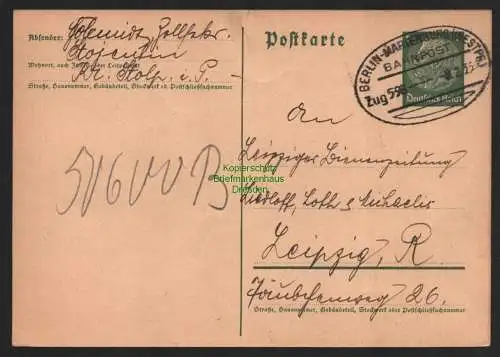 Absender: Schmidt, Zollsekr.
Stojentin
Wohnort, auch Zustell- oder Leitpostamt
Kr. Stolp i. P.
Straße, Hausnummer, Gebäudeteil, Stockwerk od. Postschließfachnummer
Postkarte
BERLIN-MARIENBURG (WESTPR)
BAHNPOST
Zug 59
Deutsches Reich
An
Leipziger Bienenzeitung
Liedloff, Loth & Michaelis
Leipzig, R
Täubchenweg 26.
Straße, Hausnummer, Gebäudeteil, Stockwerk oder Postschließfachnummer
Kopierschutz
Briefmarkenhaus
Dresden